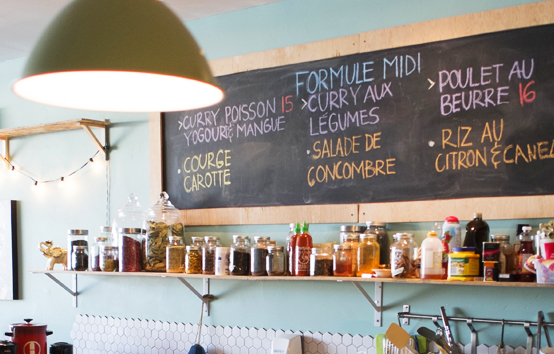 FORMULE MIDI
>CURRY POISSON 15
YOGOURT & MANGUE
• COURGE
CAROTTE
>CURRY AUX
LÉGUMES
• SALADE DE
CONCOMBRE
>POULET AU
BEURRE 16
• RIZ AU
CITRON & CANEL